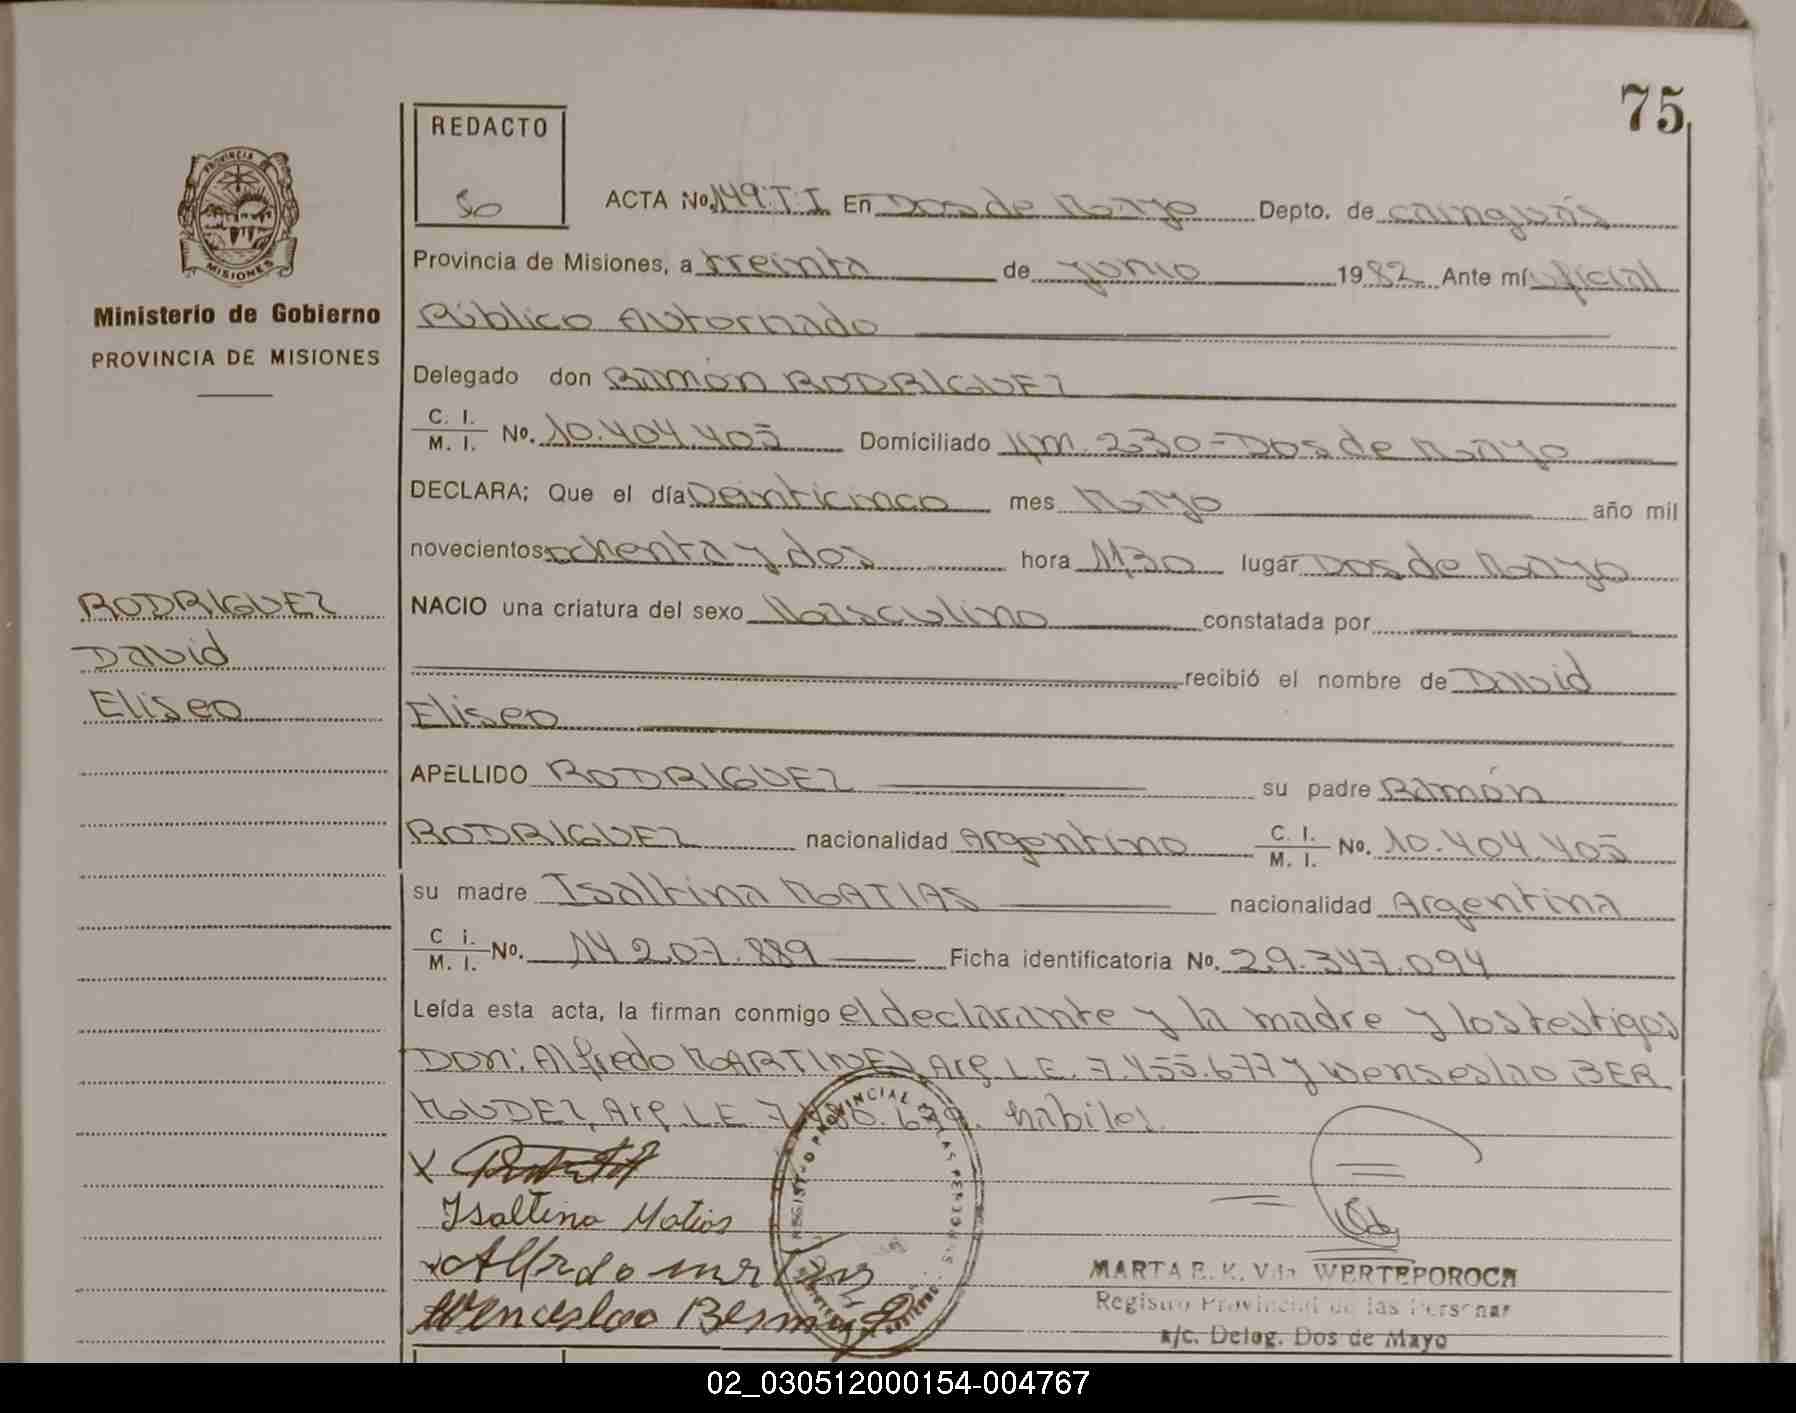 75
REDACTO
ACTA No. 149.T.I En Dos de Mayo Depto. de Cainguás
Provincia de Misiones, a treinta de junio 1982 Ante mí Oficial
Público Autorizado
Ministerio de Gobierno
PROVINCIA DE MISIONES
Delegado don Ramón RODRIGUEZ
C. I. M. I. No. 10.404.405 Domiciliado Km. 230-Dos de Mayo
DECLARA; Que el día Veinticinco mes Mayo año mil
novecientos ochenta y dos hora 11,30 lugar Dos de Mayo
NACIO una criatura del sexo Masculino constatada por
RODRIGUEZ
David
Eliseo
recibió el nombre de David
Eliseo
APELLIDO RODRIGUEZ su padre Ramón
RODRIGUEZ nacionalidad Argentino C. I. M. I. No. 10.404.405
su madre Isaltina MATIAS nacionalidad Argentina
C. I. M. I. No. 14.207.889 Ficha identificatoria No. 29.347.094
Leída esta acta, la firman conmigo el declarante y la madre y los testigos
Don: Alfredo MARTINEZ Arg. L.E. 7.455.677 y Wenseslao BER
MUDEZ, Arg. L.E. habiles.
Isaltina Matias
Wenceslao
MARTA E. K. Vda. WERTEPOROCH
Registro Provincial de las Personas
a/c. Deleg. Dos de Mayo
02_030512000154-004767